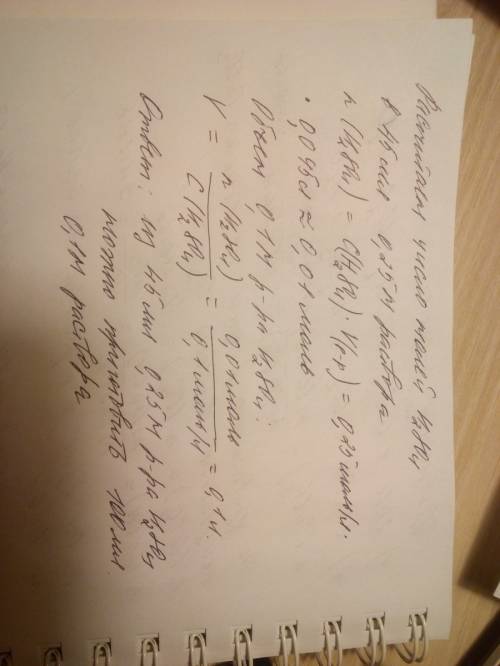 Рассчитаем число молей H₂SO₄
в 45 мл 0,25 М раствора
n(H₂SO₄) = C(H₂SO₄)·V(р-р) = 0,25 моль/л·
·0,045л ≈ 0,01 моль
Объем 0,1М р-ра H₂SO₄:
V = n(H₂SO₄) / C(H₂SO₄) = 0,01 моль / 0,1 моль/л = 0,1 л.
Ответ: из 45 мл 0,25 М р-ра H₂SO₄
можно приготовить 100 мл
0,1М раствора